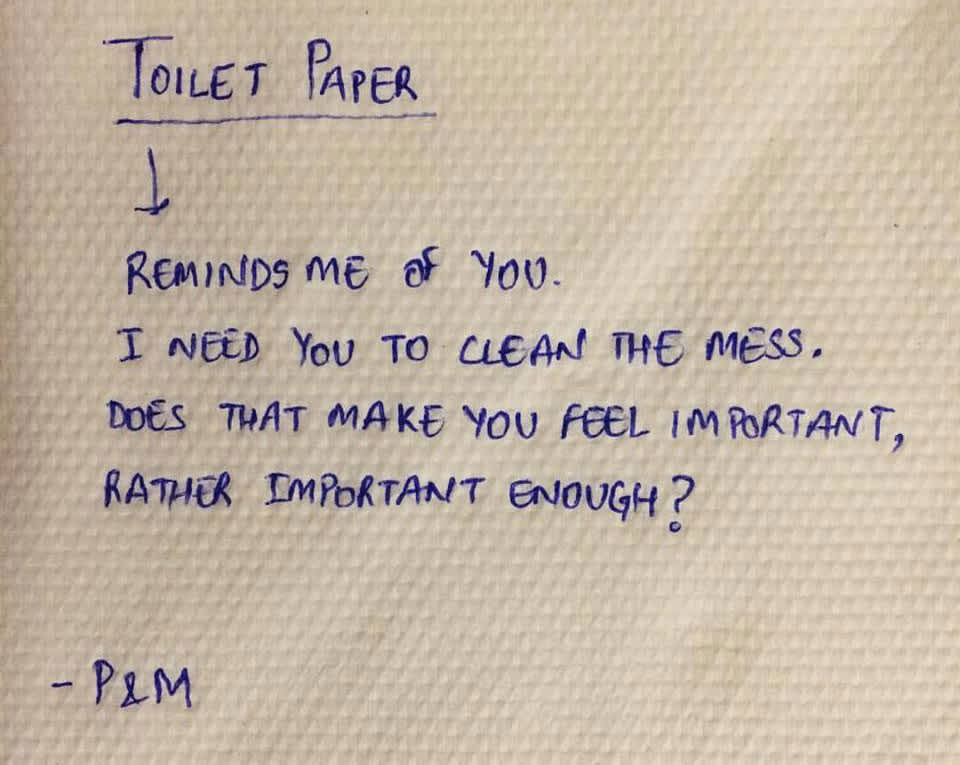 TOILET PAPER
↓
REMINDS ME OF YOU.
I NEED YOU TO CLEAN THE MESS.
DOES THAT MAKE YOU FEEL IMPORTANT,
RATHER IMPORTANT ENOUGH?
- P&M